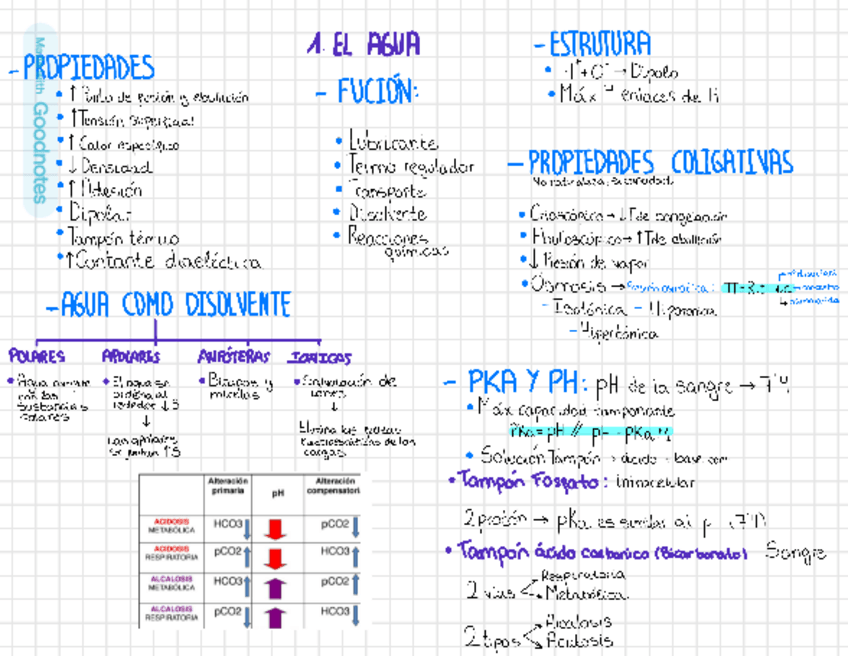 1. EL AGUA
- PROPIEDADES
• ↑ Punto de fusión y ebullición
• ↑ Tensión superficial
• ↑ Calor específico
• ↓ Densidad
• ↑ Adhesión
• Dipolar
• Tampón térmico
• ↑ Contante dialéctica
Made with Goodnotes
- FUCIÓN:
• Lubricante
• Termo regulador
• Transporte
• Disolvente
• Reacciones
químicas
- ESTRUTURA
→ Dipolo
• Máx 4 enlaces de H
- PROPIEDADES COLIGATIVAS
No naturaleza, si cantidad
• Crioscópico → ↓ T de congelación
→ ↑ T de ebullición
• ↓ Presión de vapor
• Osmosis →
- Isotónica - Hipotónica
- Hipertónica
- AGUA COMO DISOLVENTE
POLARES
• Agua
con las
sustancias
polares
APOLARES
• El agua se
ordena al
rededor ↓S
↓
Las apolares
se juntan ↑S
ANFÓTERAS
• Bicapas y
micelas
IONICAS
• de
iones
↓
las
de las
cargas
- PKA Y PH: pH de la sangre → 7'4
• Máx capacidad tamponante
PKa = pH // pH = PKa
• Solución Tampón ácido base
• Tampón Fosfato: intracelular
2 protón → pKa es similar al p (7'4)
• Tampón ácido carbonico (Bicarbonato) Sangre
2 vias < Respiratoria
Metabólica
2 tipos < Alcalosis
Acidosis
Alteración primaria pH Alteración compensatori
ACIDOSIS METABÓLICA HCO3 ↓ ↓ pCO2 ↓
ACIDOSIS RESPIRATORIA pCO2 ↑ ↓ HCO3 ↑
ALCALOSIS METABÓLICA HCO3 ↑ ↑ pCO2 ↑
ALCALOSIS RESPIRATORIA pCO2 ↓ ↑ HCO3 ↓